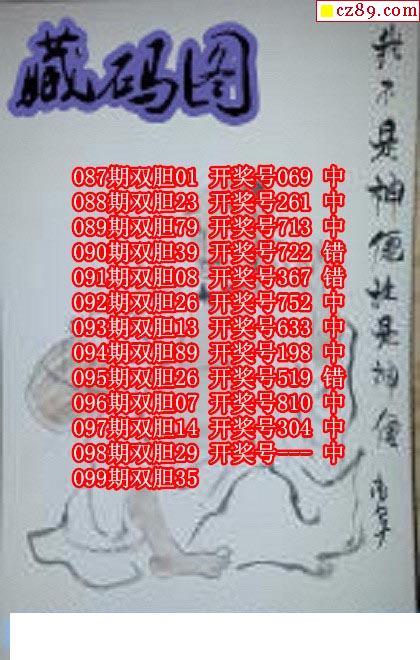 cz89.com
藏码图
087期双胆01 开奖号069 中
088期双胆23 开奖号261 中
089期双胆79 开奖号713 中
090期双胆39 开奖号722 错
091期双胆08 开奖号367 错
092期双胆26 开奖号752 中
093期双胆13 开奖号633 中
094期双胆89 开奖号198 中
095期双胆26 开奖号519 错
096期双胆07 开奖号810 中
097期双胆14 开奖号304 中
098期双胆29 开奖号--- 中
099期双胆35
我不是神仙
是神仙